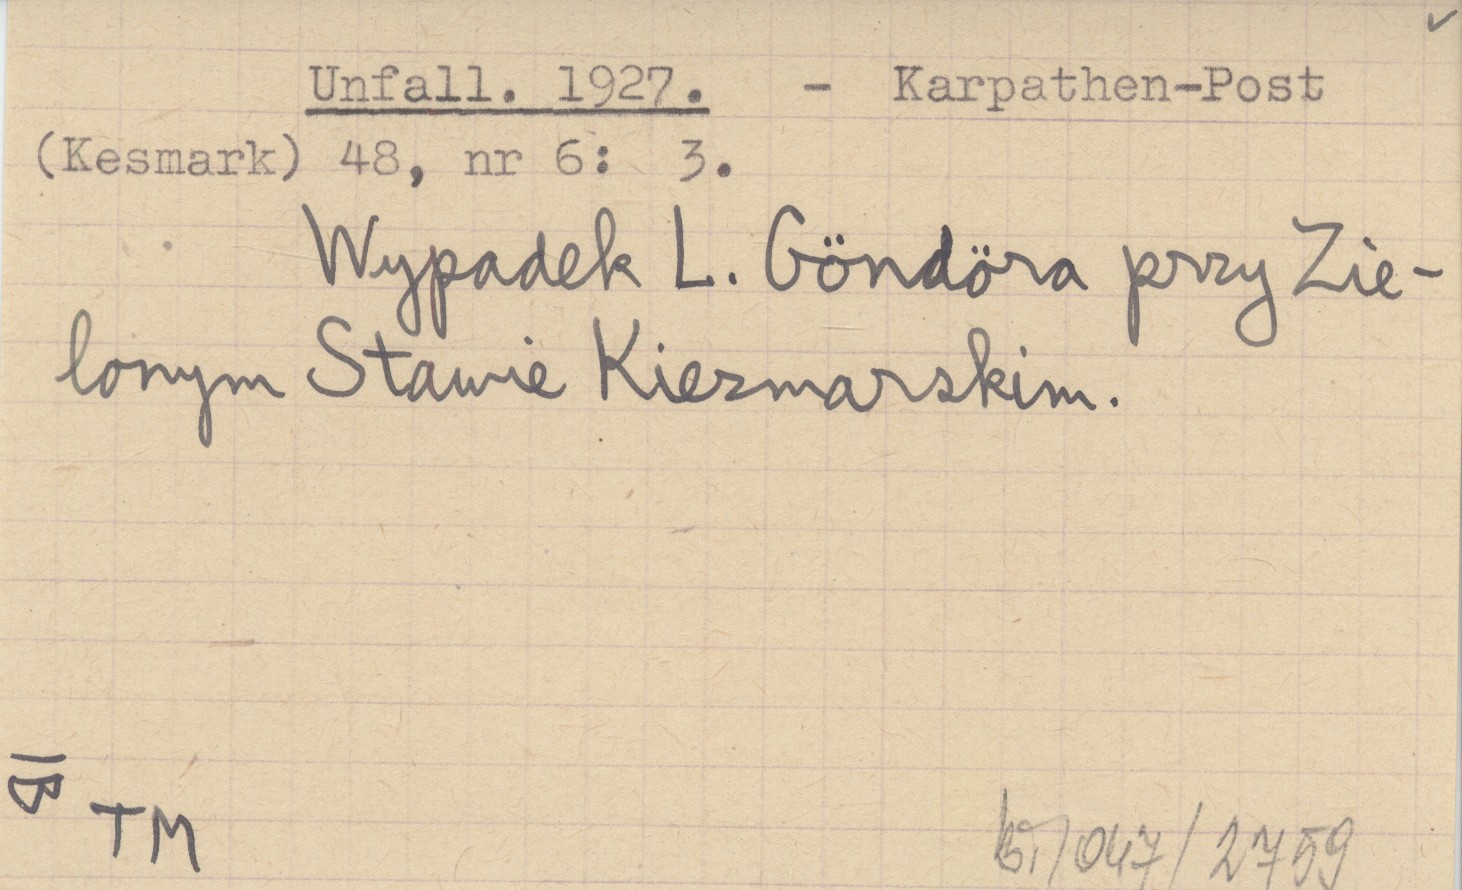 Unfall. 1927. - Karpathen-Post
(Kesmark) 48, nr 6: 3.
Wypadek L. Göndöra przy Zie-
lonym Stawie Kiezmarskim.
TM
047/2759